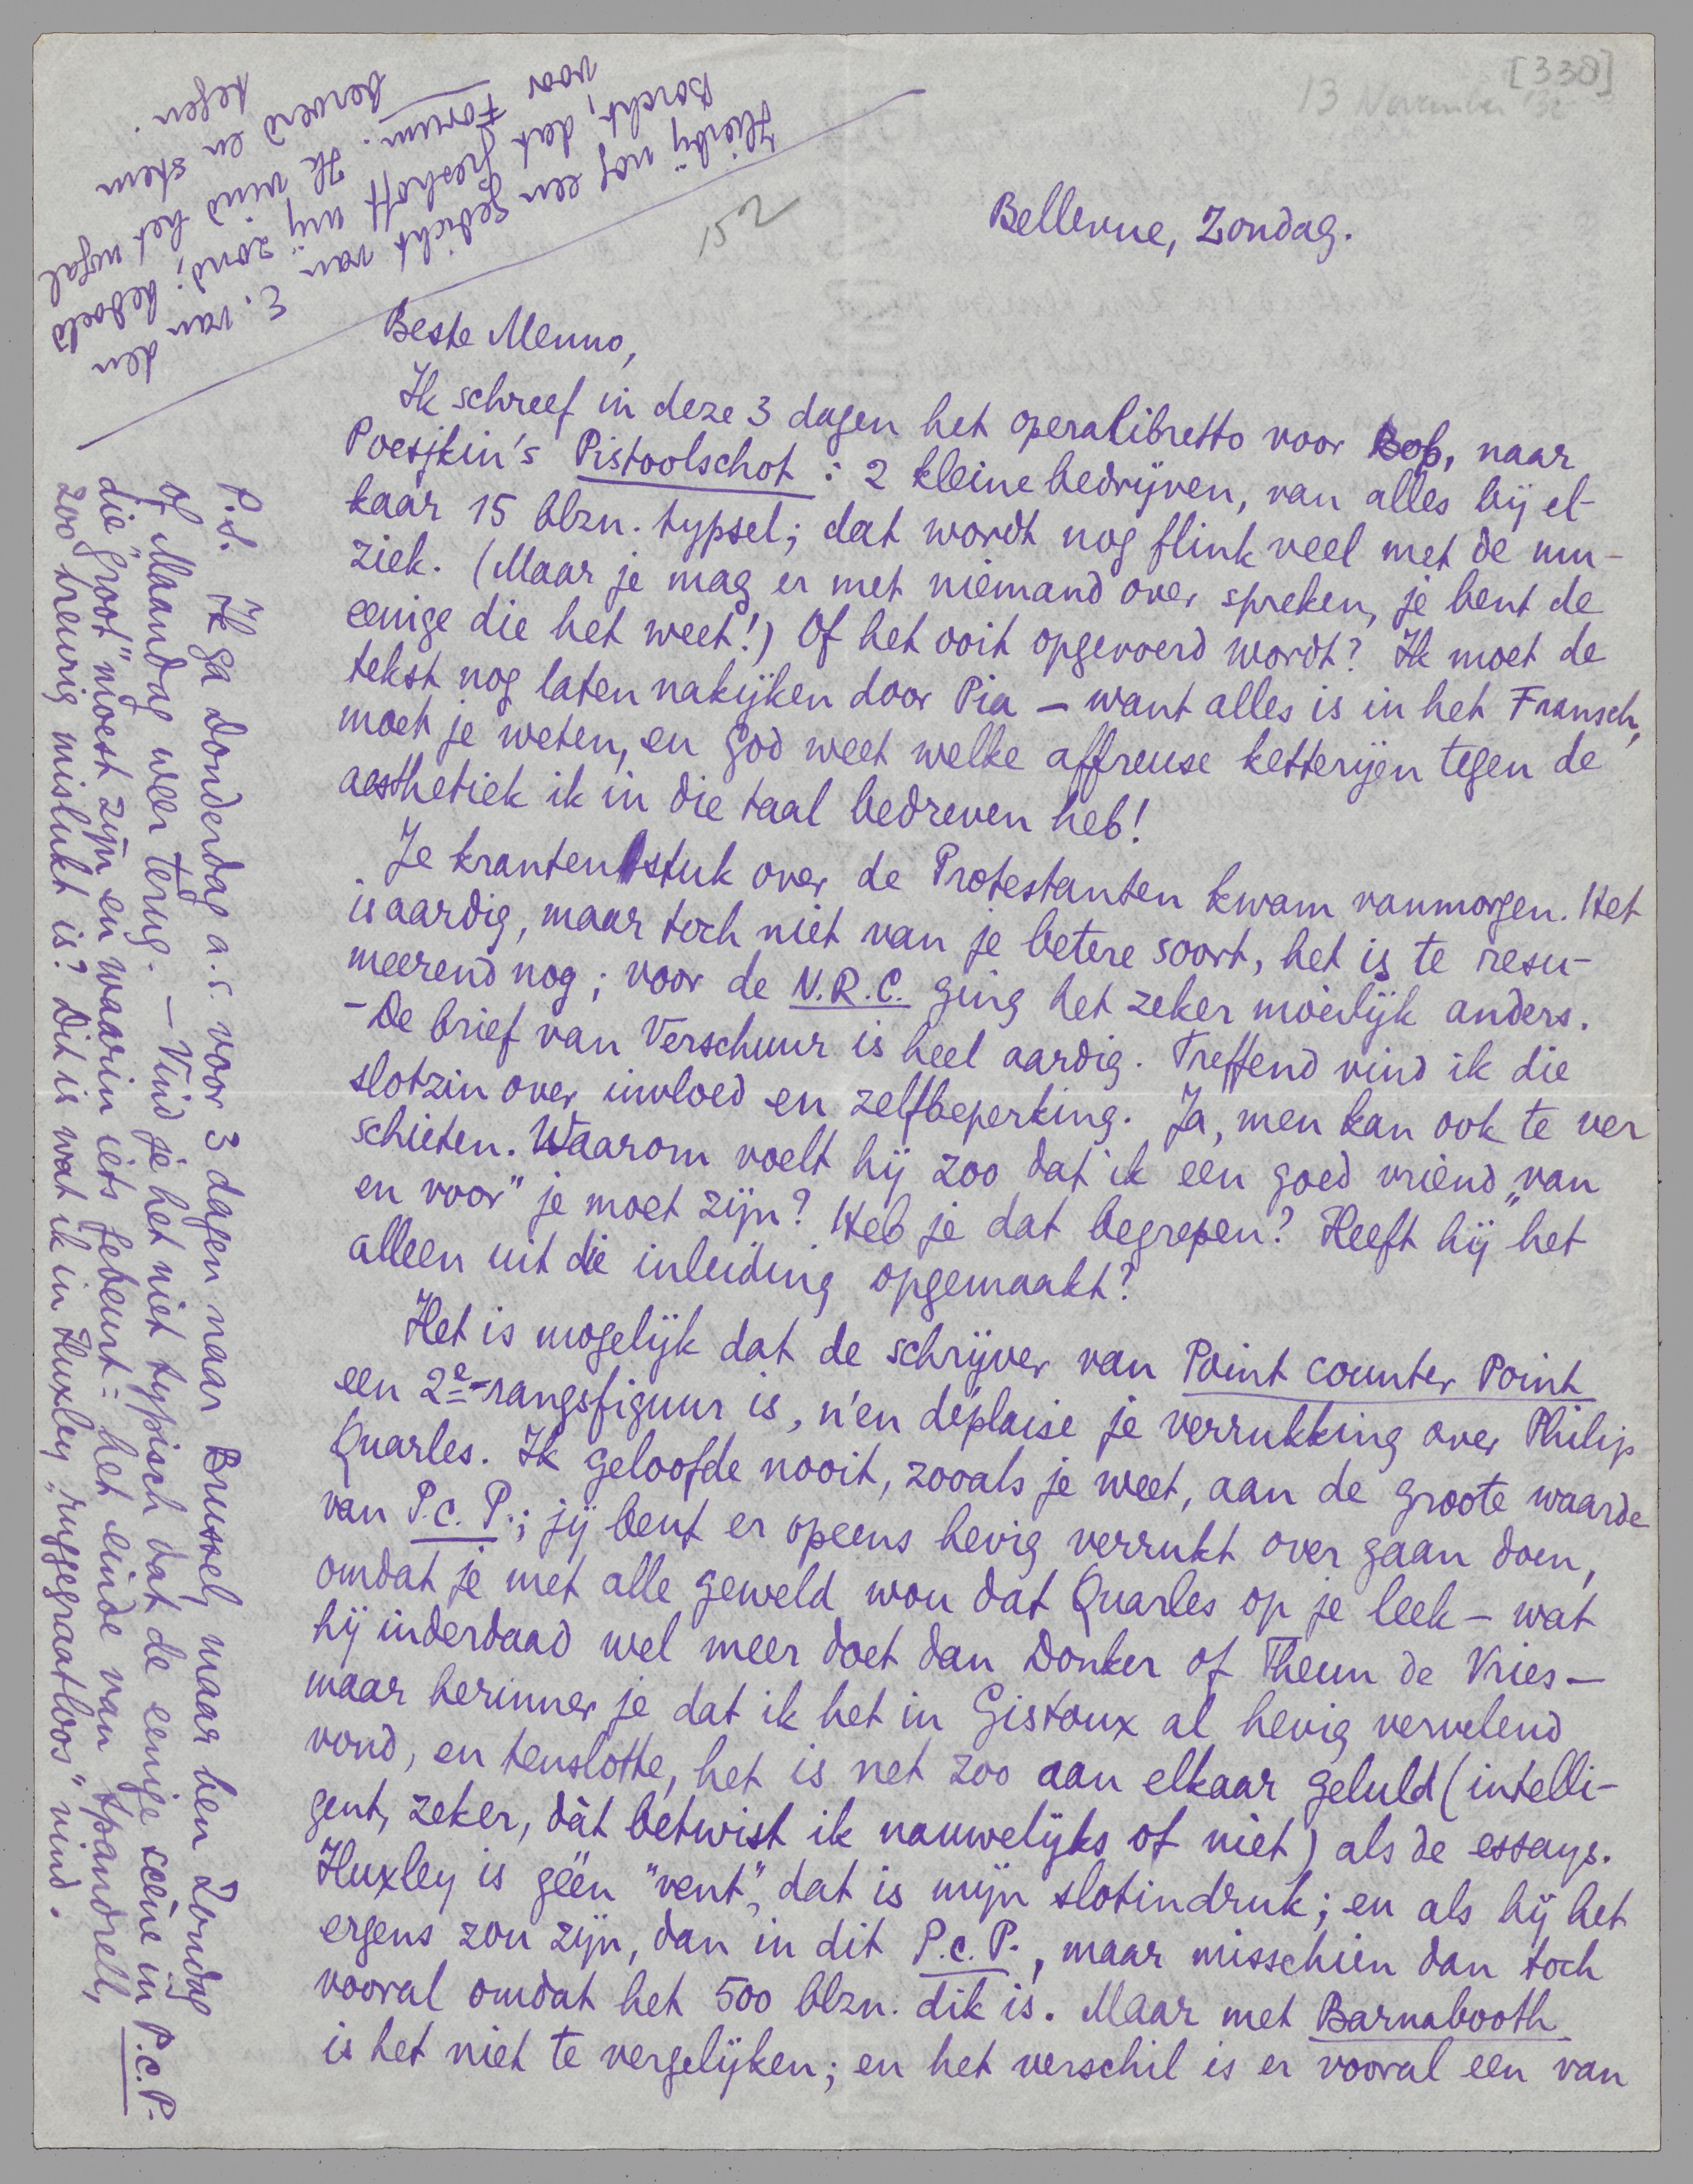 [338]
13 November '32
152
Bellevue, Zondag.
Beste Menno,
Ik schreef in deze 3 dagen het operalibretto voor Bob, naar
Poesjkin's Pistoolschot: 2 kleine bedrijven, van alles bij el-
kaar 15 blzn. typsel; dat wordt nog flink veel met de mu-
ziek. (Maar je mag er met niemand over spreken, je bent de
eenige die het weet!) Of het ooit opgevoerd wordt? Ik moet de
tekst nog laten nakijken door Pia – want alles is in het Fransch,
moet je weten, en god weet welke affreuse ketterijen tegen de
aesthetiek ik in die taal bedreven heb!
Je krantenstuk over de Protestanten kwam vanmorgen. Het
is aardig, maar toch niet van je betere soort, het is te resu-
meerend nog; voor de N.R.C. ging het zeker moeilijk anders.
- De brief van Verschuur is heel aardig. Treffend vind ik die
slotzin over invloed en zelfbeperking. Ja, men kan ook te ver
schieten. Waarom voelt hij zoo dat ik een goed vriend „van
en voor" je moet zijn? Heb je dat begrepen? Heeft hij het
alleen uit die inleiding opgemaakt?
Het is mogelijk dat de schrijver van Point counter Point
een 2e-rangsfiguur is, n'en déplaise je verrukking over Philip
Quarles. Ik geloofde nooit, zooals je weet, aan de groote waarde
van P.c.P.; jij bent er opeens hevig verrukt over gaan doen,
omdat je met alle geweld wou dat Quarles op je leek – wat
hij inderdaad wel meer doet dan Donker of Theun de Vries –
maar herinner je dat ik het in Gistoux al hevig vervelend
vond, en tenslotte, het is net zoo aan elkaar geluld (intelli-
gent, zeker, dàt betwist ik nauwelijks of niet) als de essays.
Huxley is géén "vent", dat is mijn slotindruk; en als hij het
ergens zou zijn, dan in dit P.c.P., maar misschien dan toch
vooral omdat het 500 blzn. dik is. Maar met Barnabooth
is het niet te vergelijken; en het verschil is er vooral een van
P.S. Ik ga Donderdag a.s. voor 3 dagen naar Brussel, maar ben Zondag
of Maandag weer terug. – Vind je het niet typisch dat de eenige scène in P.c.P.
die „groot" moest zijn en waarin iets gebeurt: het einde van Spandrell,
zoo treurig mislukt is? Dit is wat ik in Huxley „ruggegraatloos" vind.
Hierbij nog een gedicht van E. van den
Borcht, dat Greshoff mij zond; bedoeld
voor Forum. Ik vind het nogal
beroerd en stem
tegen.